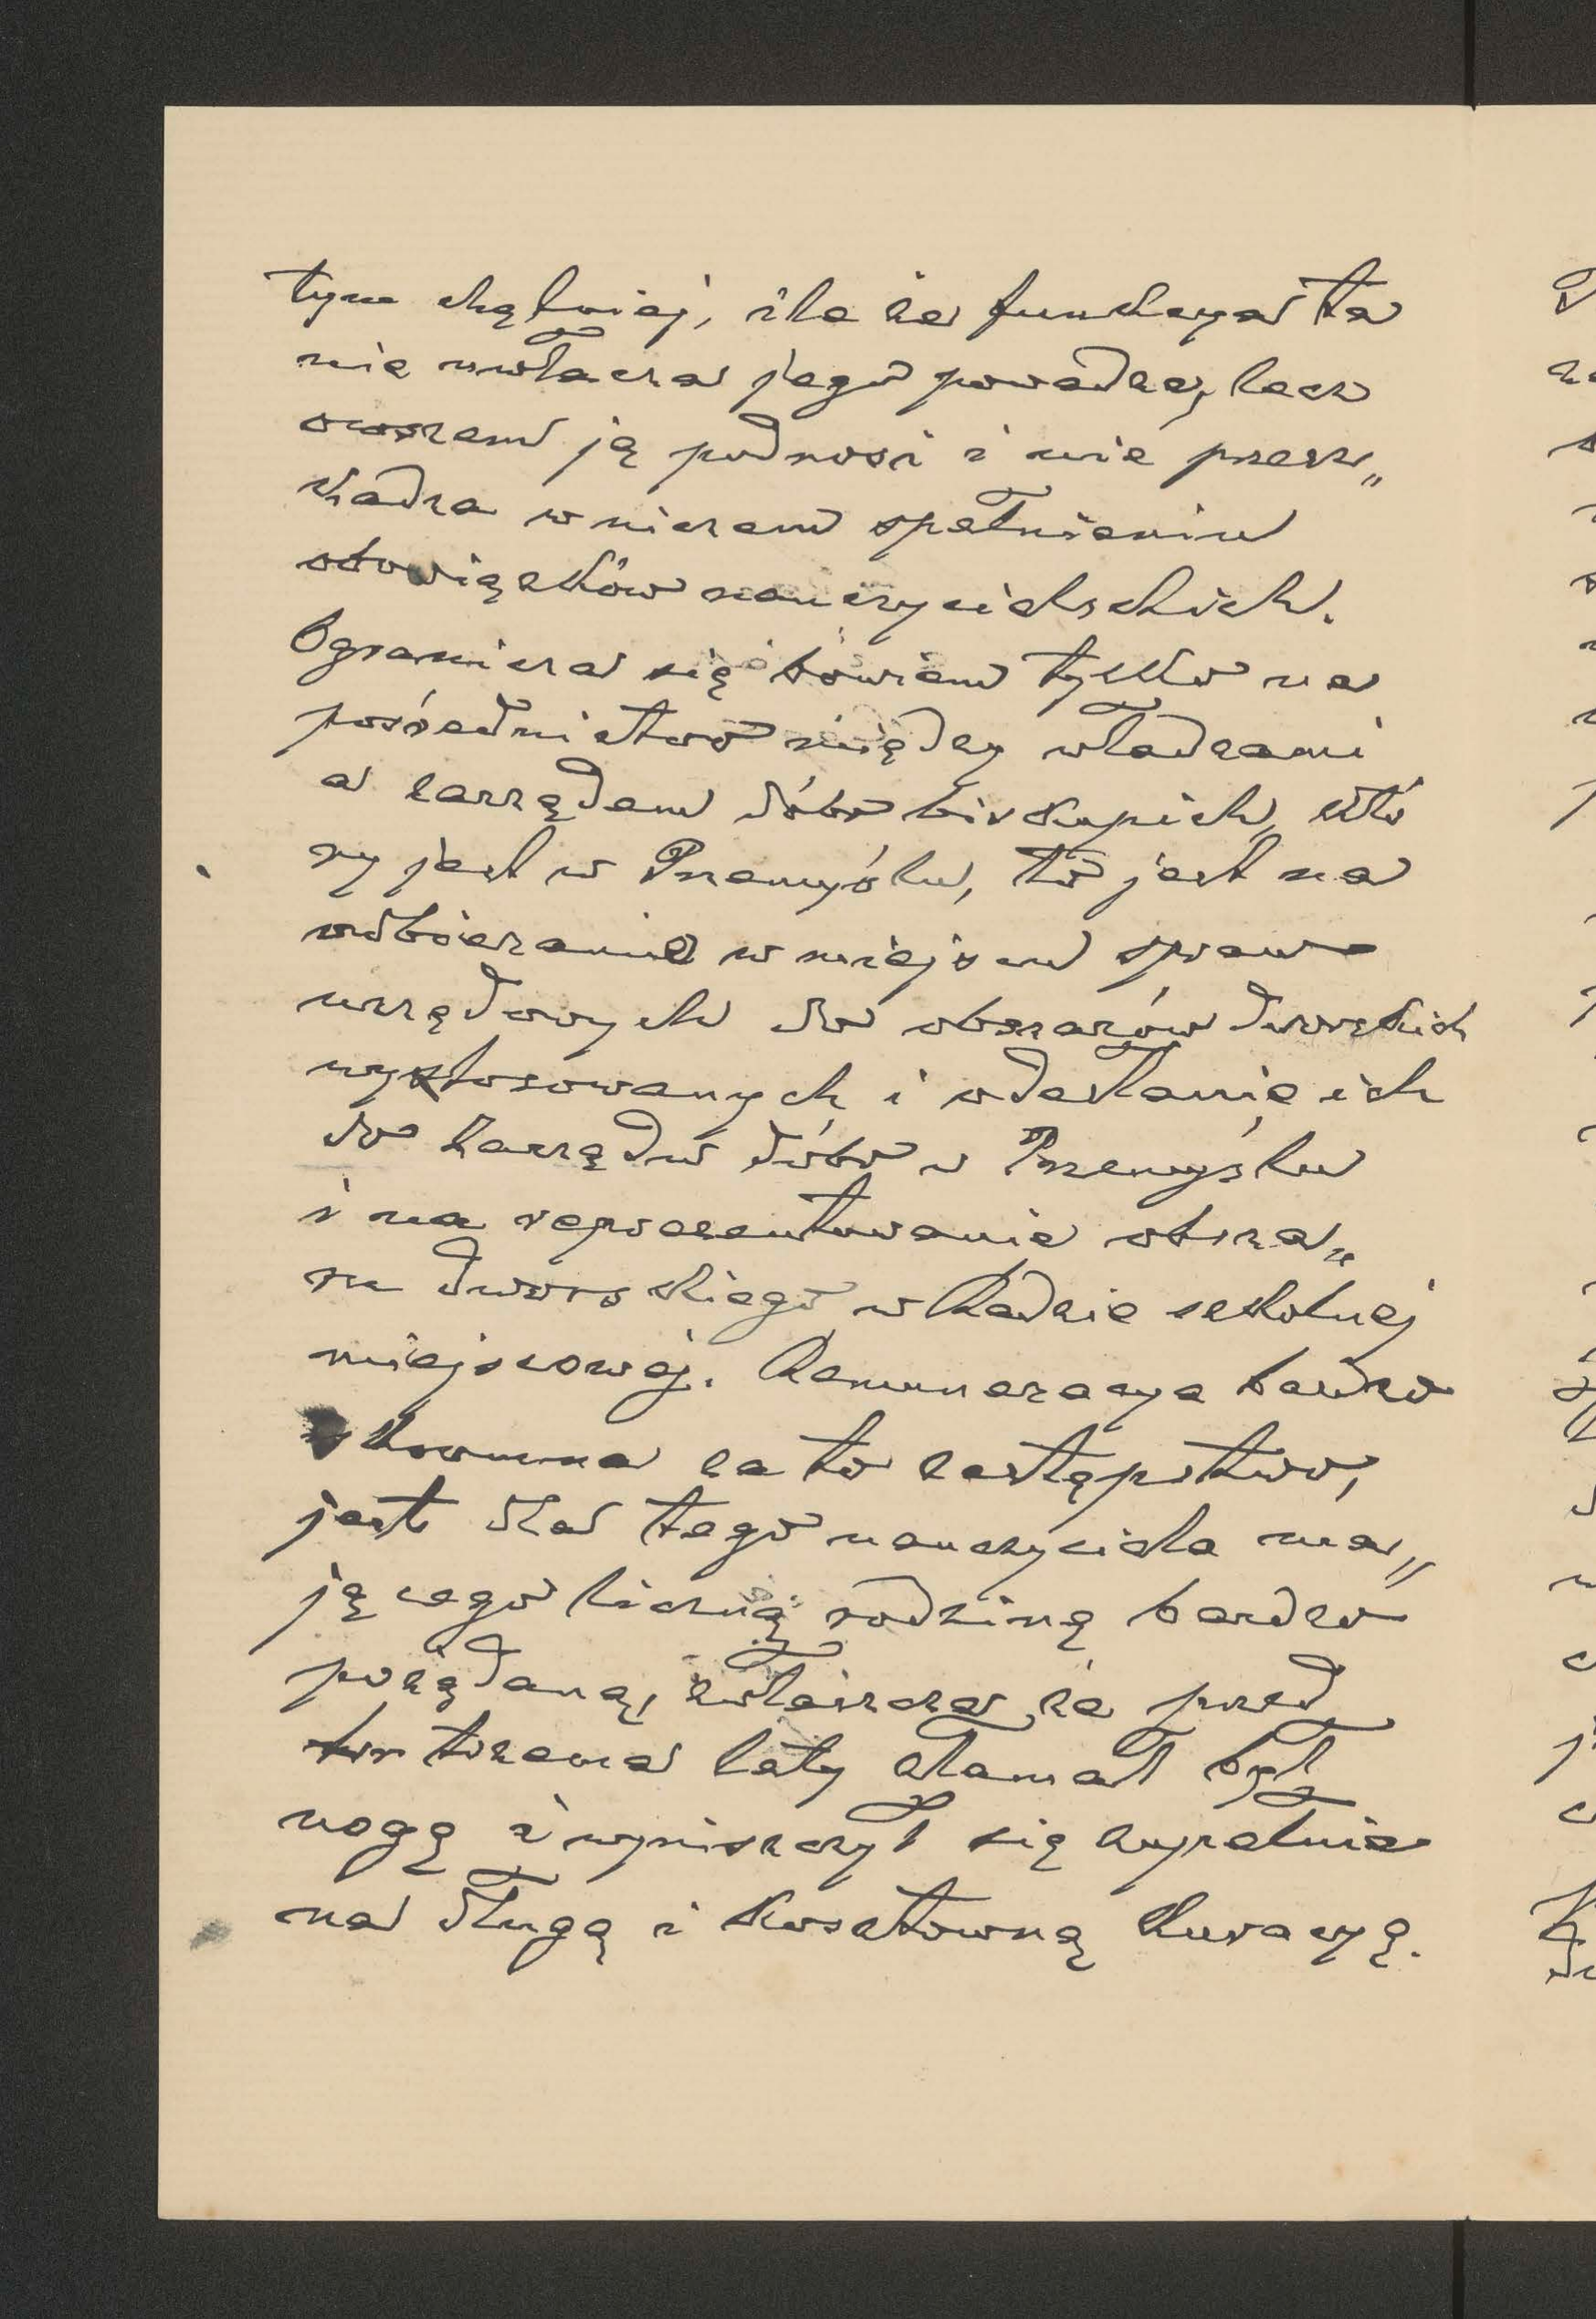 tym chętniej, ile że funkcya ta
nie uwłacza jego powadze, lecz
owszem ją podnosi i nie przesz„
kadza w niczem spełnieniu
obowiązków nauczycielskich.
Ogranicza się bowiem tylko na
pośrednictwo między władzami
a zarządem dóbr biskupich, któ
ry jest w Przemyślu, to jest na
odbieranie w miejscu spraw
urzędowych do obszarów dworskich
wystosowanych i odesłanie ich
do Zarządu dóbr w Przemyślu
i na reprezentowanie obsza„
ru dworskiego w Radzie szkolnej
miejscowej. Remuneracya bardzo
skromna za to zastępstwo,
jest dla tego nauczyciela ma„
jącego liczną rodzinę bardzo
pożądaną, zwłaszcza że przed
trzema laty złamał był
nogę i wyniszczył się zupełnie
na długą i kosztowną kuracyę.